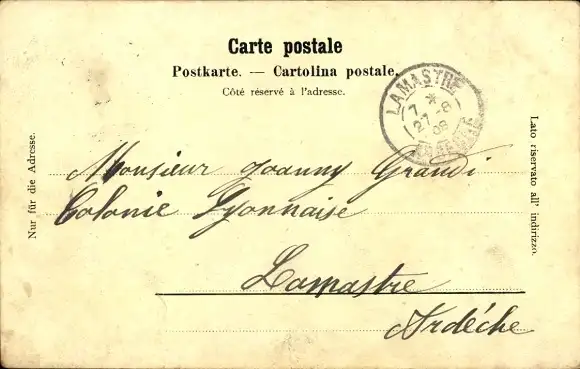 Carte postale
Postkarte. — Cartolina postale.
Côté réservé à l'adresse.
LAMASTRE
7 *
27 -8
08
ARDÈCHE
Nur für die Adresse.
Lato riservato all' indirizzo.
Monsieur Joanny Grandi
Colonie Lyonnaise
Lamastre
Ardéche